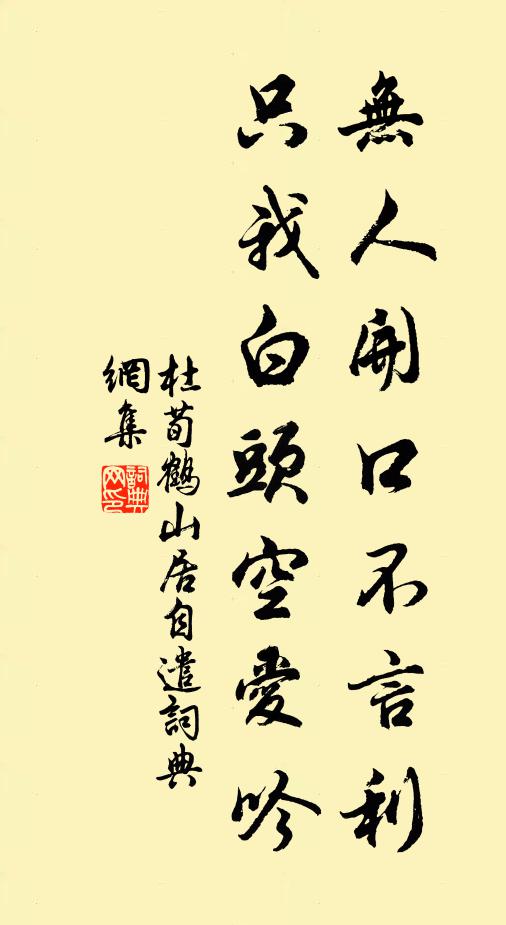 無人開口不言利
只我白頭空愛吟
杜荀鶴山居自遣詞典
網集
詞典
网印